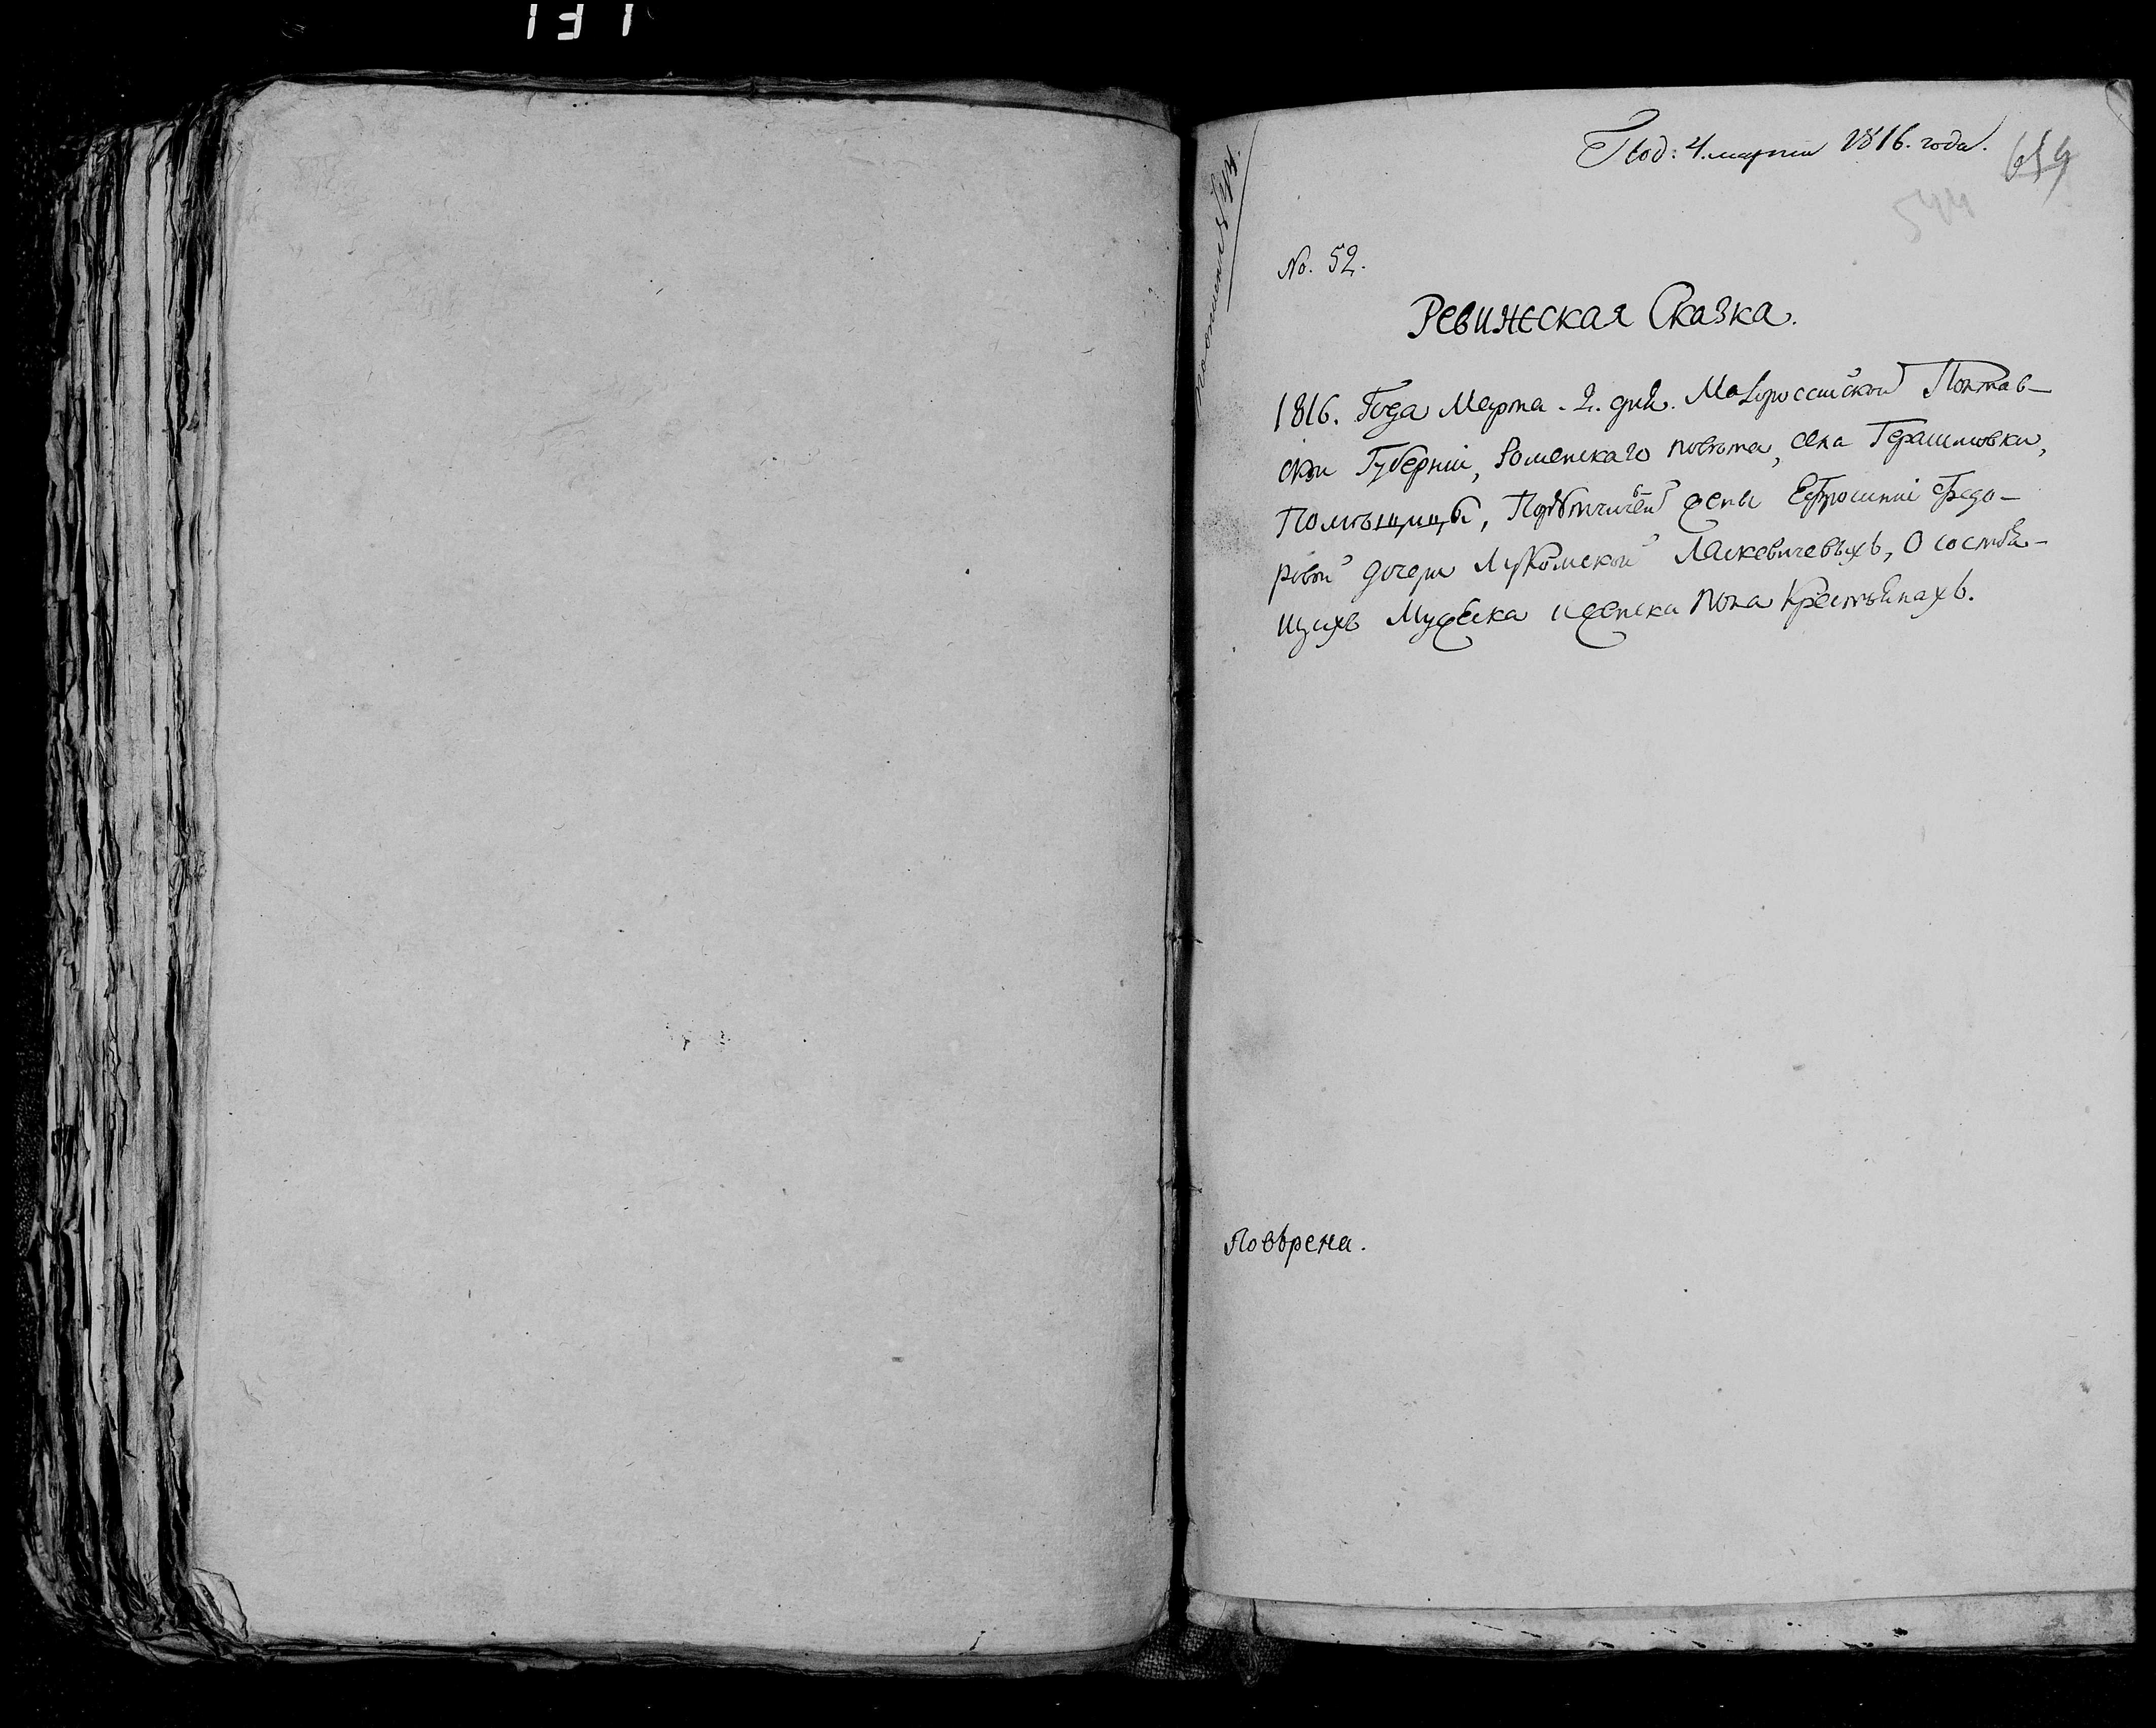 131
Под: 4. марта 1816. года.
654
544
No. 52.
Ревижская Сказка.
1816. Года Марта. 2. дня. Малороссийской Полтав-
ской Губернии, Роменскаго повѣта, села Герасимовки,
Помѣщицы, жены Ефросиніи Федо-
ровой дочери Лукомской Паскевичевыхъ, О состоя-
щихъ Мужеска и женска пола Крестьянахъ.
Повѣрена.